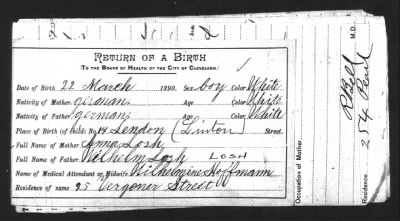 RETURN OF A BIRTH
(TO THE BOARD OF HEALTH OF THE CITY OF CLEVELAND.)
Date of Birth 22 March 1890. Sex boy Color White
Nativity of Mother, german, Age Color White
Nativity of Father german, Age Color White
Place of Birth (of child) No 14 Lendon (Linton) Street.
Full Name of Mother Anna Losh,
Full Name of Father Wilhelm Losh LOSH
Name of Medical Attendant or Midwife Wilhelmine Hoffmann
Residence of same 25 Vergener Street
Occupation of Mother
Residence 254 Pearl
M.D.